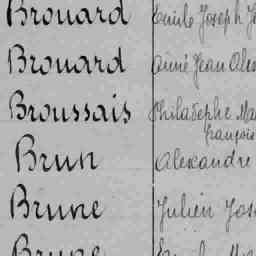 Brouard Emile Joseph
Brouard Aimé Jean
Broussais Philadephe
François
Brun Alexandre
Brune Julien
Brune